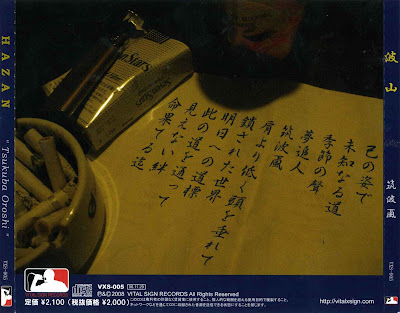 HAZAN
"Tsukuba Oroshi"
VXS-005
波山
筑波颪
VXS-005
Stars
己の姿で
未知なる道
季節の聲
夢追人
筑波颪
肩より低く頭を垂れて
鎖された世界
明日への道標
此の道を通って
見えない絆
命果てる迄
VITAL SIGN RECORDS
定価 ¥2,100 (税抜価格 ¥2,000)
VXS-005
℗&© 2008 VITAL SIGN RECORDS All Rights Reserved
http://vitalxsign.com